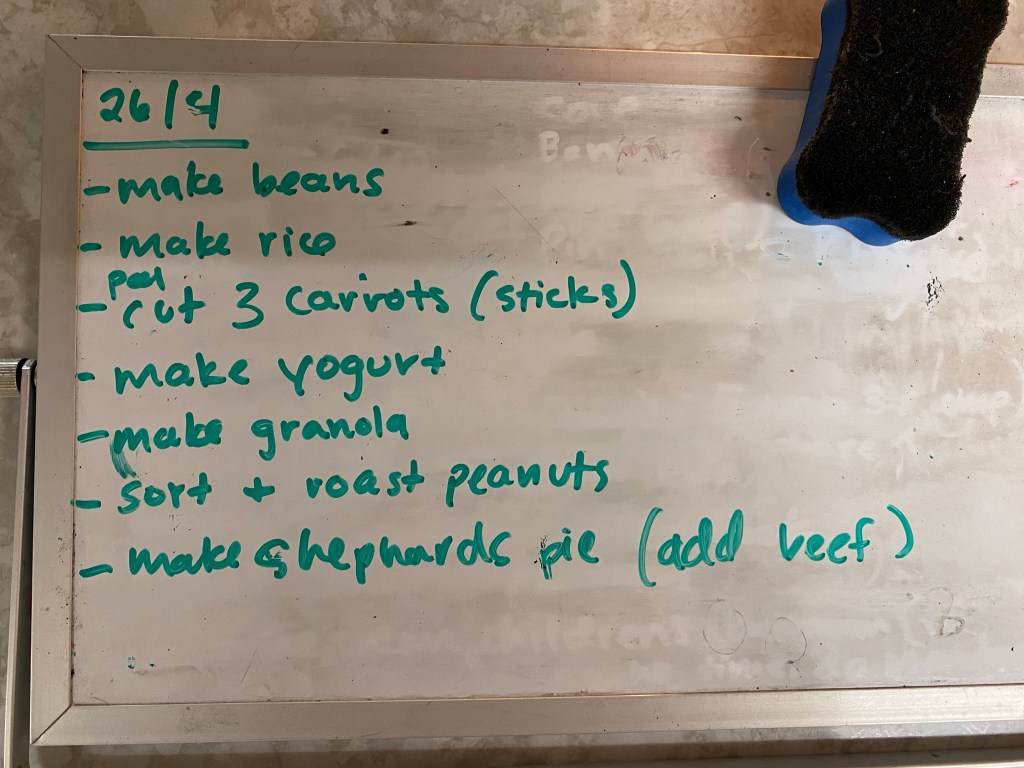 26/4
- make beans
- make rice
peel
- cut 3 carrots (sticks)
- make yogurt
- make granola
- sort + roast peanuts
- make shephards pie (add beef)